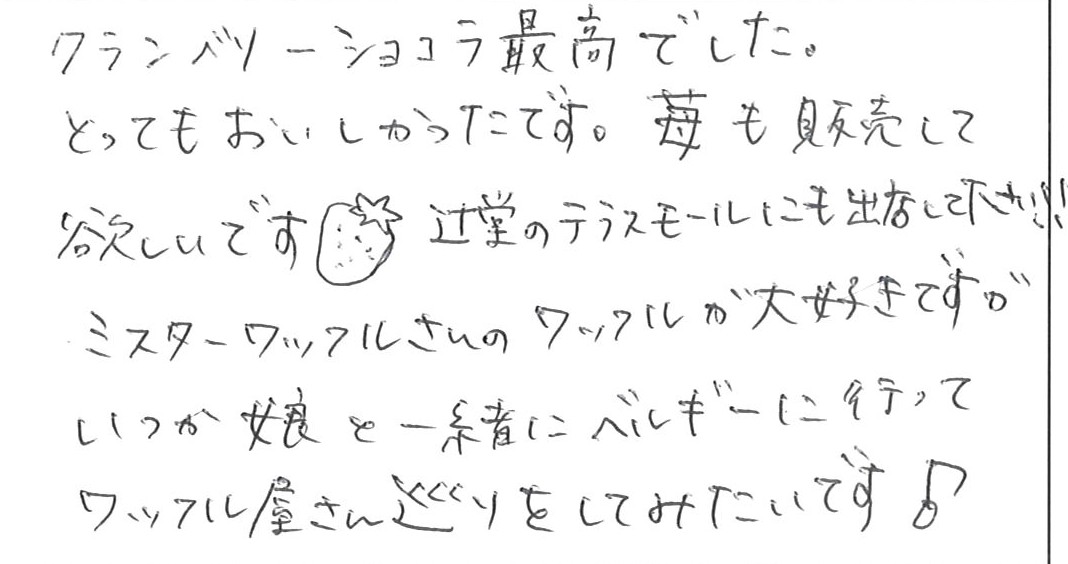 クランベリーショコラ最高でした。
とってもおいしかったです。苺も販売して
欲しいです 辻堂のテラスモールにも出店して下さい!!
ミスターワッフルさんのワッフルが大好きですが
いつか娘と一緒にベルギーに行って
ワッフル屋さん巡りをしてみたいです♪